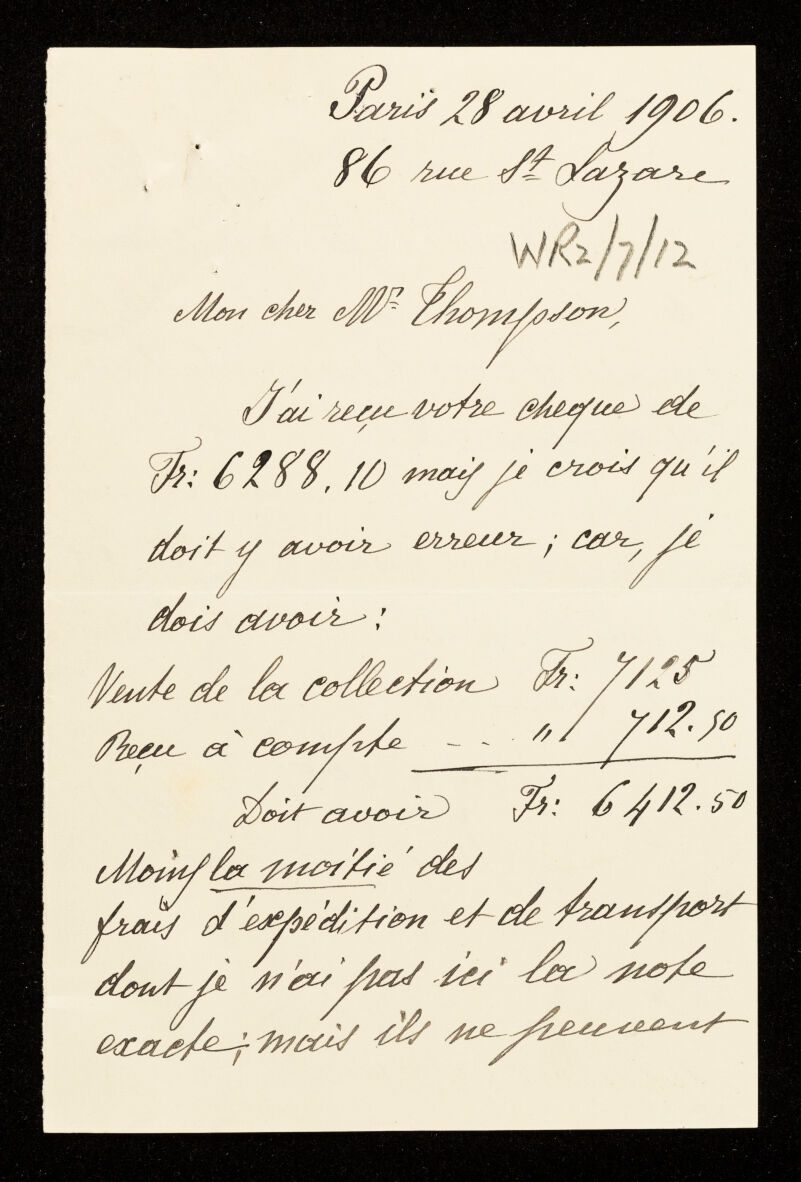 Paris 28 avril 1906.
86 rue St Lazare
WR2/7/12
Mon cher Mr Thompson,
J'ai reçu votre cheque de
Fr: 6288.10 mais je crois qu'il
doit y avoir erreur ; car, je
dois avoir :
Vente de la collection Fr: 7125
Reçu à compte - - " 712.50
Doit avoir Fr: 6412.50
Moins la moitié des
frais d'expédition et de transport
dont je n'ai pas ici la note
exacte ; mais ils ne peuvent